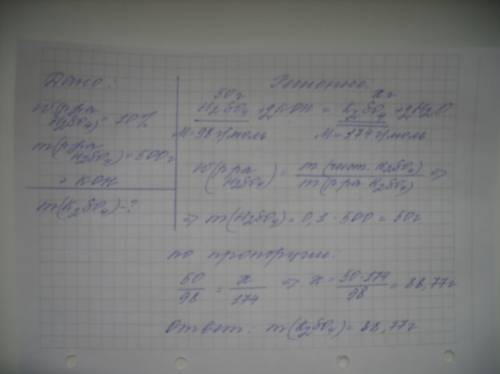 Дано:
w(р-ра H2SO4) = 10%
m(р-ра H2SO4) = 500г
+ KOH
m(K2SO4) - ?
Решение:
50г xг
H2SO4 + 2KOH = K2SO4 + 2H2O
M=98 г/моль M=174 г/моль
w(р-ра H2SO4) = m(чист. H2SO4) / m(р-ра H2SO4) =>
=> m(H2SO4) = 0,1 · 500 = 50г
по пропорции:
50/98 = x/174 => x = 50·174/98 = 88,77г
Ответ: m(K2SO4) = 88,77г